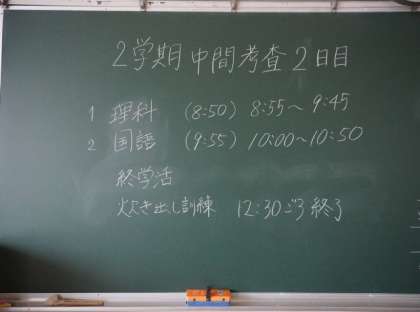 2学期中間考査2日目
1 理科 (8:50) 8:55〜9:45
2 国語 (9:55) 10:00〜10:50
終学活
炊き出し訓練 12:30ごろ終了